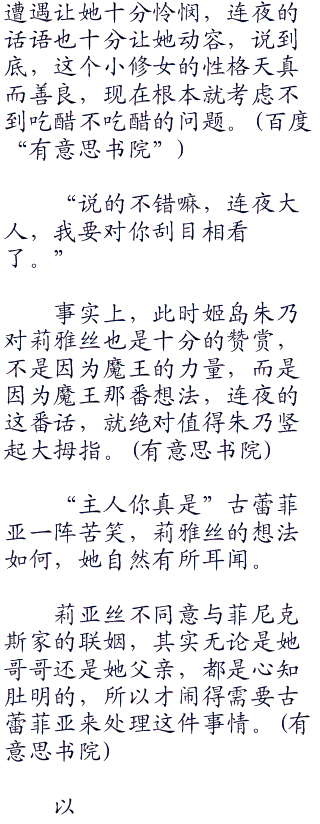 遭遇让她十分怜悯，连夜的
话语也十分让她动容，说到
底，这个小修女的性格天真
而善良，现在根本就考虑不
到吃醋不吃醋的问题。(百度
“有意思书院”)
“说的不错嘛，连夜大
人，我要对你刮目相看
了。”
事实上，此时姬岛朱乃
对莉雅丝也是十分的赞赏，
不是因为魔王的力量，而是
因为魔王那番想法，连夜的
这番话，就绝对值得朱乃竖
起大拇指。(有意思书院)
“主人你真是”古蕾菲
亚一阵苦笑，莉雅丝的想法
如何，她自然有所耳闻。
莉亚丝不同意与菲尼克
斯家的联姻，其实无论是她
哥哥还是她父亲，都是心知
肚明的，所以才闹得需要古
蕾菲亚来处理这件事情。(有
意思书院)
以